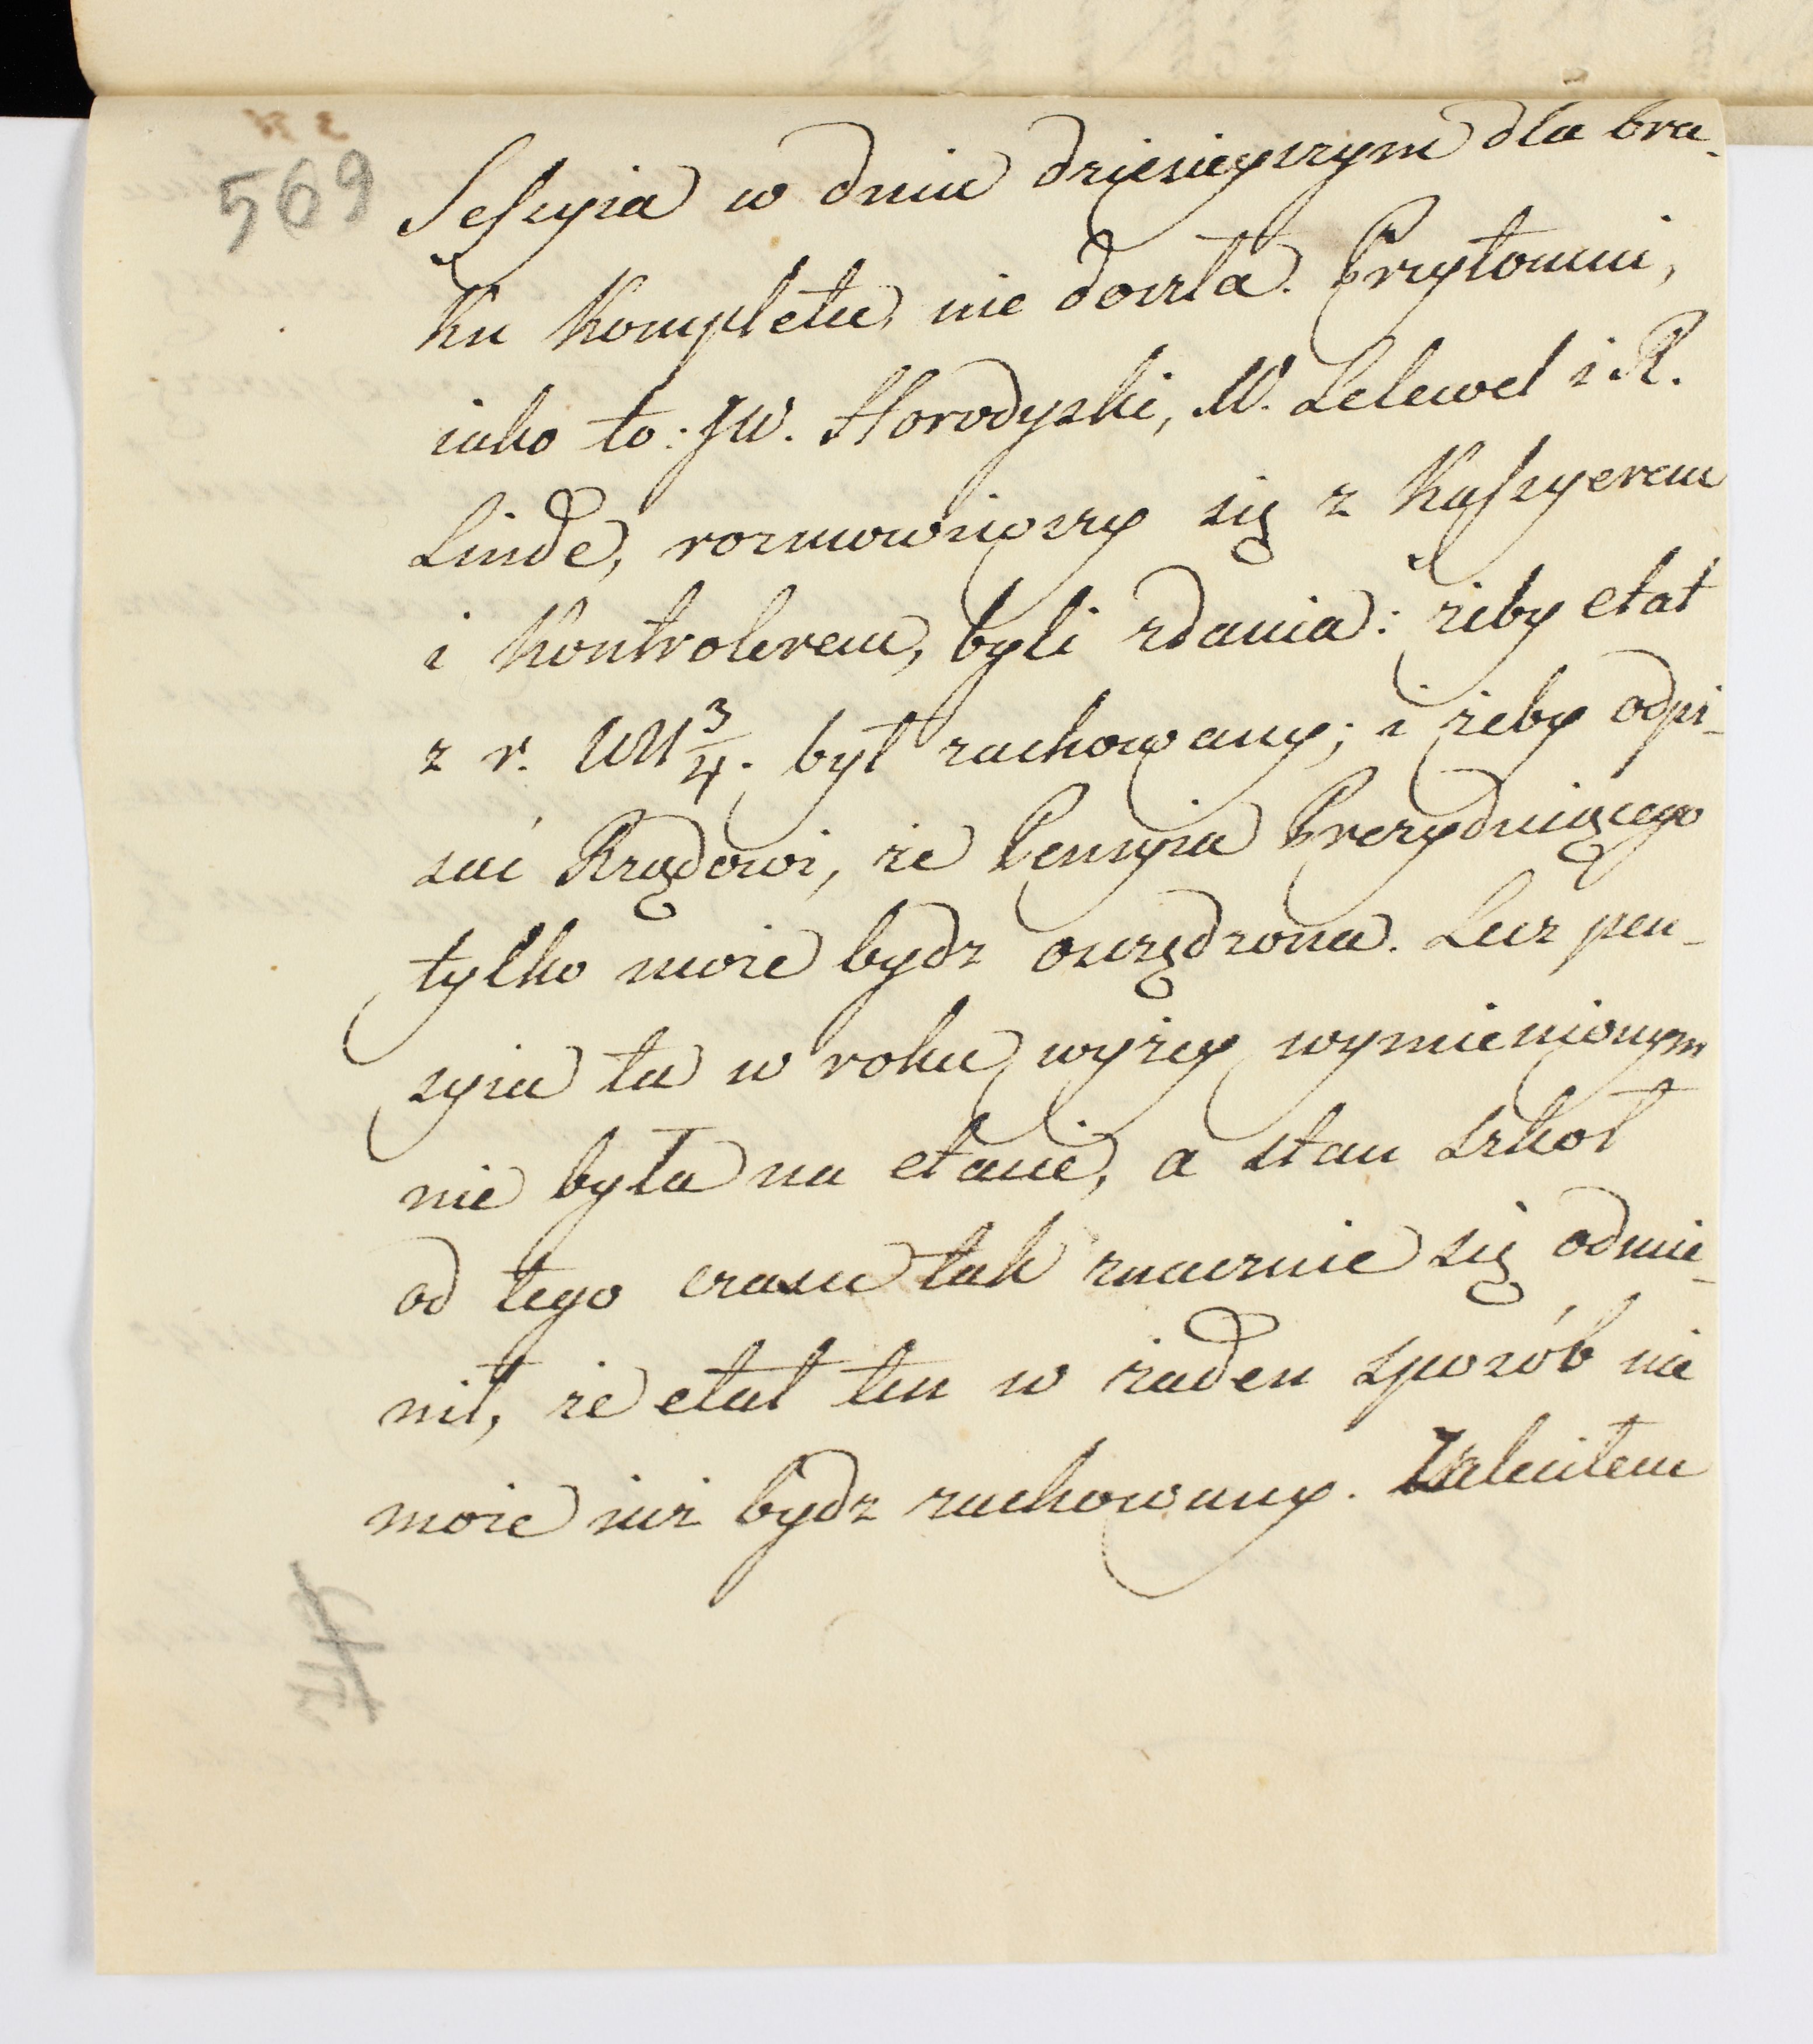 569
Sessyia w dniu dzisieyszym dla bra-
ku kompletu, nie doszła. Przytomni,
iako to: JW. Horodyski, W. Lelewel i R.
Linde, rozmowiwszy się z Kassyerem
i Kontrolerem, byli zdania: żeby etat
z r. 18 3/4. był zachowany; i żeby odpi-
sać Rządowi, że Pensyia Prezyduiącego
tylko może bydz oszczędzona. Lecz pen-
syia ta w roku wyżey wymienionym
nie była na etacie, a stan szkoł
od tego czasu tak znacznie się odmie-
nił, że etat ten w żaden sposób nie
może iuż bydz zachowany. Zaleciłem